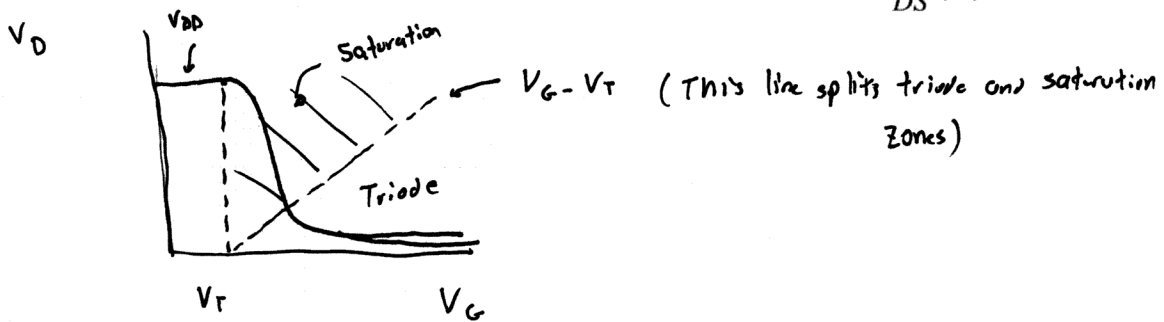 DS
V_DD
V_D
Saturation
V_G - V_T (This line splits triode and saturation
zones)
Triode
V_T
V_G